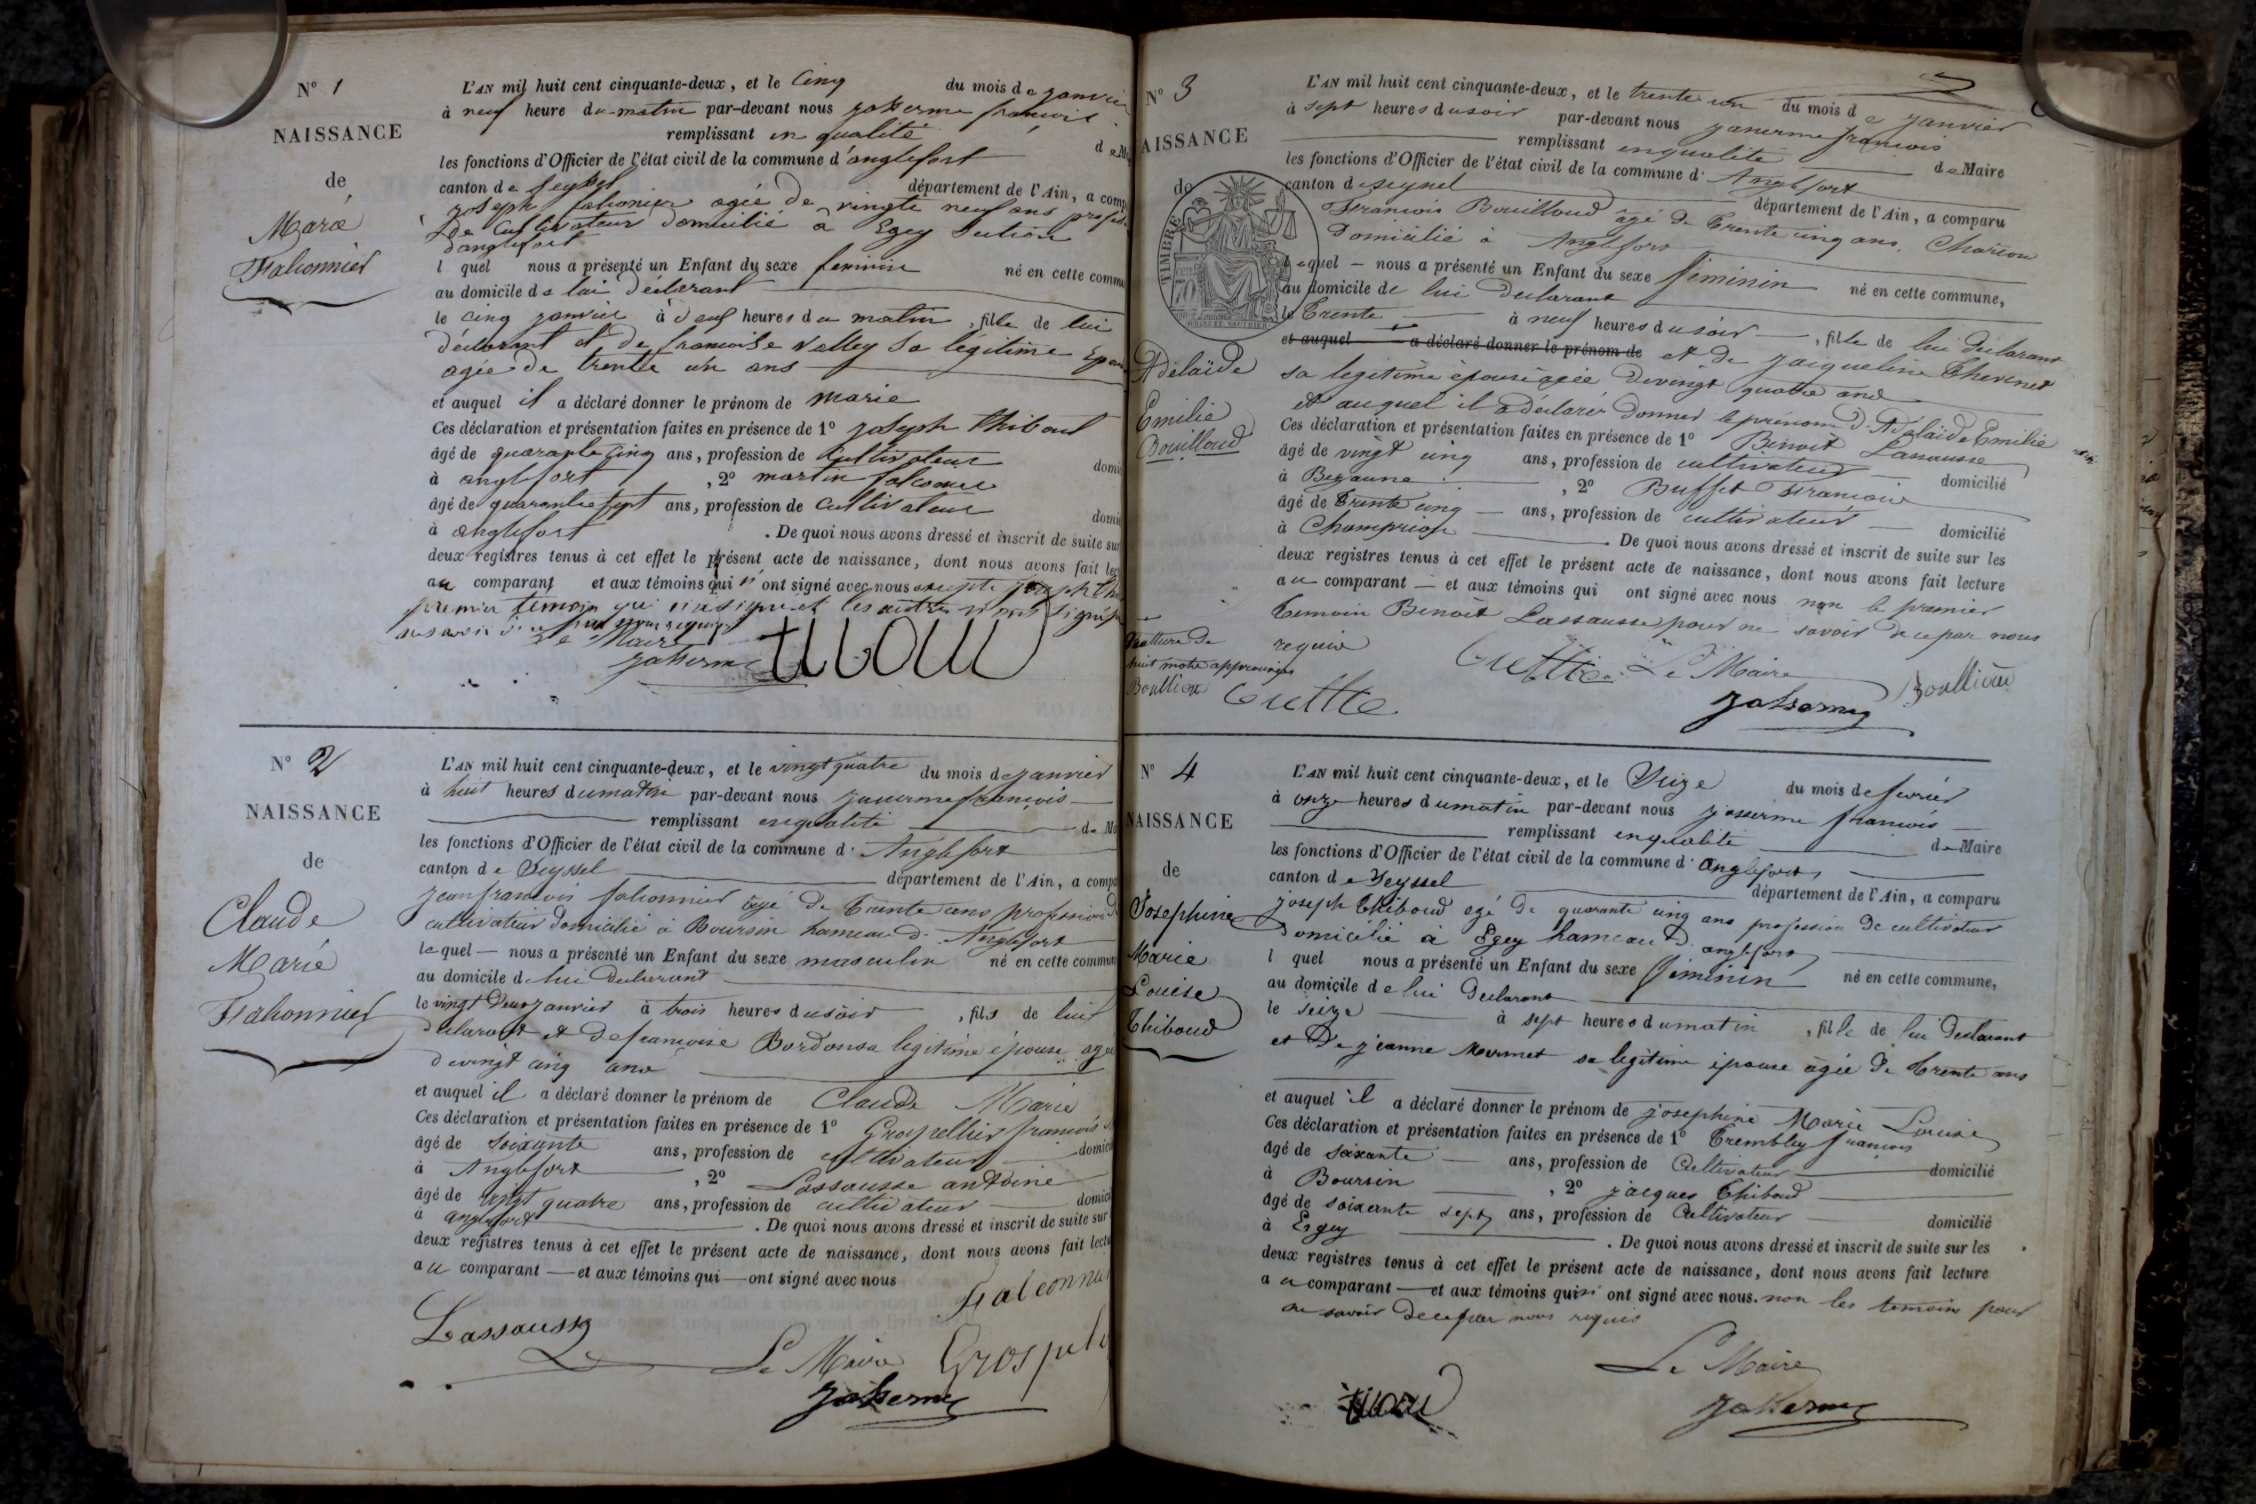 N° 1
NAISSANCE
de
Marie
Falconnier
L'AN mil huit cent cinquante-deux, et le Cinq du mois de janvier
à neuf heure du matin par-devant nous françois
remplissant en qualité de
les fonctions d'Officier de l'état civil de la commune d'anglefort
canton de Seyssel département de l'Ain, a comp
joseph agée de vingte neuf ans
de Cultivateur domicilié à Egey Section
d'anglefort
l quel nous a présenté un Enfant du sexe feminin né en cette commu
au domicile de lui déclarant
le cinq janvier à heures du matin, fille de lui
déclarant et de francoise Valley Sa légitime
agée de trente un ans
et auquel il a déclaré donner le prénom de marie
Ces déclaration et présentation faites en présence de 1° joseph thiboud
âgé de quarante cinq ans, profession de Cultivateur domi
à anglefort, 2° martin
âgé de quarante sept ans, profession de Cultivateur domi
à anglefort. De quoi nous avons dressé et inscrit de suite sur
deux registres tenus à cet effet le présent acte de naissance, dont nous avons fait lec
au comparant et aux témoins qui n'ont signé avec nous
premier témoin qui et les autres
Le Maire
N° 2
NAISSANCE
de
Claude
Marie
Falconnier
L'AN mil huit cent cinquante-deux, et le vingt quatre du mois de janvier
à huit heures du matin par-devant nous françois
remplissant en qualité de Ma
les fonctions d'Officier de l'état civil de la commune d'Anglefort
canton de Seyssel département de l'Ain, a compa
jean françois agé de trente ans profession
cultivateur domicilié à Boursin hameau d'Anglefort
lequel nous a présenté un Enfant du sexe masculin né en cette commun
au domicile de lui declarant
le vingt deux janvier à trois heures du soir, fils de lui
declarant et de francoise Bordon sa legitime épouse
de vingt cinq ans
et auquel il a déclaré donner le prénom de Claude Marie
Ces déclaration et présentation faites en présence de 1° Grospellier francois
âgé de soixante ans, profession de cultivateur domici
à Anglefort, 2° Lassausse antoine
âgé de vingt quatre ans, profession de cultivateur domici
à anglefort. De quoi nous avons dressé et inscrit de suite sur
deux registres tenus à cet effet le présent acte de naissance, dont nous avons fait lectu
au comparant et aux témoins qui ont signé avec nous
Lassausse
Le Maire
N° 3
AISSANCE
de
TIMBRE
Adélaïde
Emilie
Bouilloud
L'AN mil huit cent cinquante-deux, et le trente un du mois de janvier
à sept heures du soir par-devant nous françois
remplissant en qualité de Maire
les fonctions d'Officier de l'état civil de la commune d'Anglefort
canton de seyssel département de l'Ain, a comparu
François Bouilloud âgé de trente cinq ans, Charron
Domicilié à Anglefort
lequel nous a présenté un Enfant du sexe féminin né en cette commune,
au domicile de lui declarant
le Trente à neuf heures du soir, fille de lui declarant
et auquel a déclaré donner le prénom de et de jacqueline Thevenet
sa legitime épouse agée de vingt quatre ans
et auquel il a déclaré donner le prénom d'Adelaïde Emilie
Ces déclaration et présentation faites en présence de 1° Benoit Lassausse
âgé de vingt cinq ans, profession de cultivateur domicilié
à, 2° Buffet francois
âgé de Trente cinq ans, profession de cultivateur domicilié
à Champriond. De quoi nous avons dressé et inscrit de suite sur les
deux registres tenus à cet effet le présent acte de naissance, dont nous avons fait lecture
au comparant et aux témoins qui ont signé avec nous non le premier
témoin Benoit Lassausse pour ne savoir de ce par nous
requis
huit mots
Le Maire
N° 4
NAISSANCE
de
Josephine
Marie
Louise
Thiboud
L'AN mil huit cent cinquante-deux, et le Seize du mois de fevrier
à onze heures du matin par-devant nous françois
remplissant en qualité de Maire
les fonctions d'Officier de l'état civil de la commune d'anglefort
canton de Seyssel département de l'Ain, a comparu
joseph Thiboud agé de quarante cinq ans profession de cultivateur
domicilié à Egey hameau d'anglefort
l quel nous a présenté un Enfant du sexe féminin né en cette commune,
au domicile de lui declarant
le seize à sept heures du matin, fille de lui declarant
et De jeanne Mermet sa legitime épouse agée de trente ans
et auquel il a déclaré donner le prénom de josephine Marie Louise
Ces déclaration et présentation faites en présence de 1° Trembley francois
âgé de soixante ans, profession de Cultivateur domicilié
à Boursin, 2° jacques Thiboud
âgé de soixante sept ans, profession de Cultivateur domicilié
à Egey. De quoi nous avons dressé et inscrit de suite sur les
deux registres tenus à cet effet le présent acte de naissance, dont nous avons fait lecture
au comparant et aux témoins qui ont signé avec nous. non les temoins pour
ne savoir de ce par nous requis
Le Maire